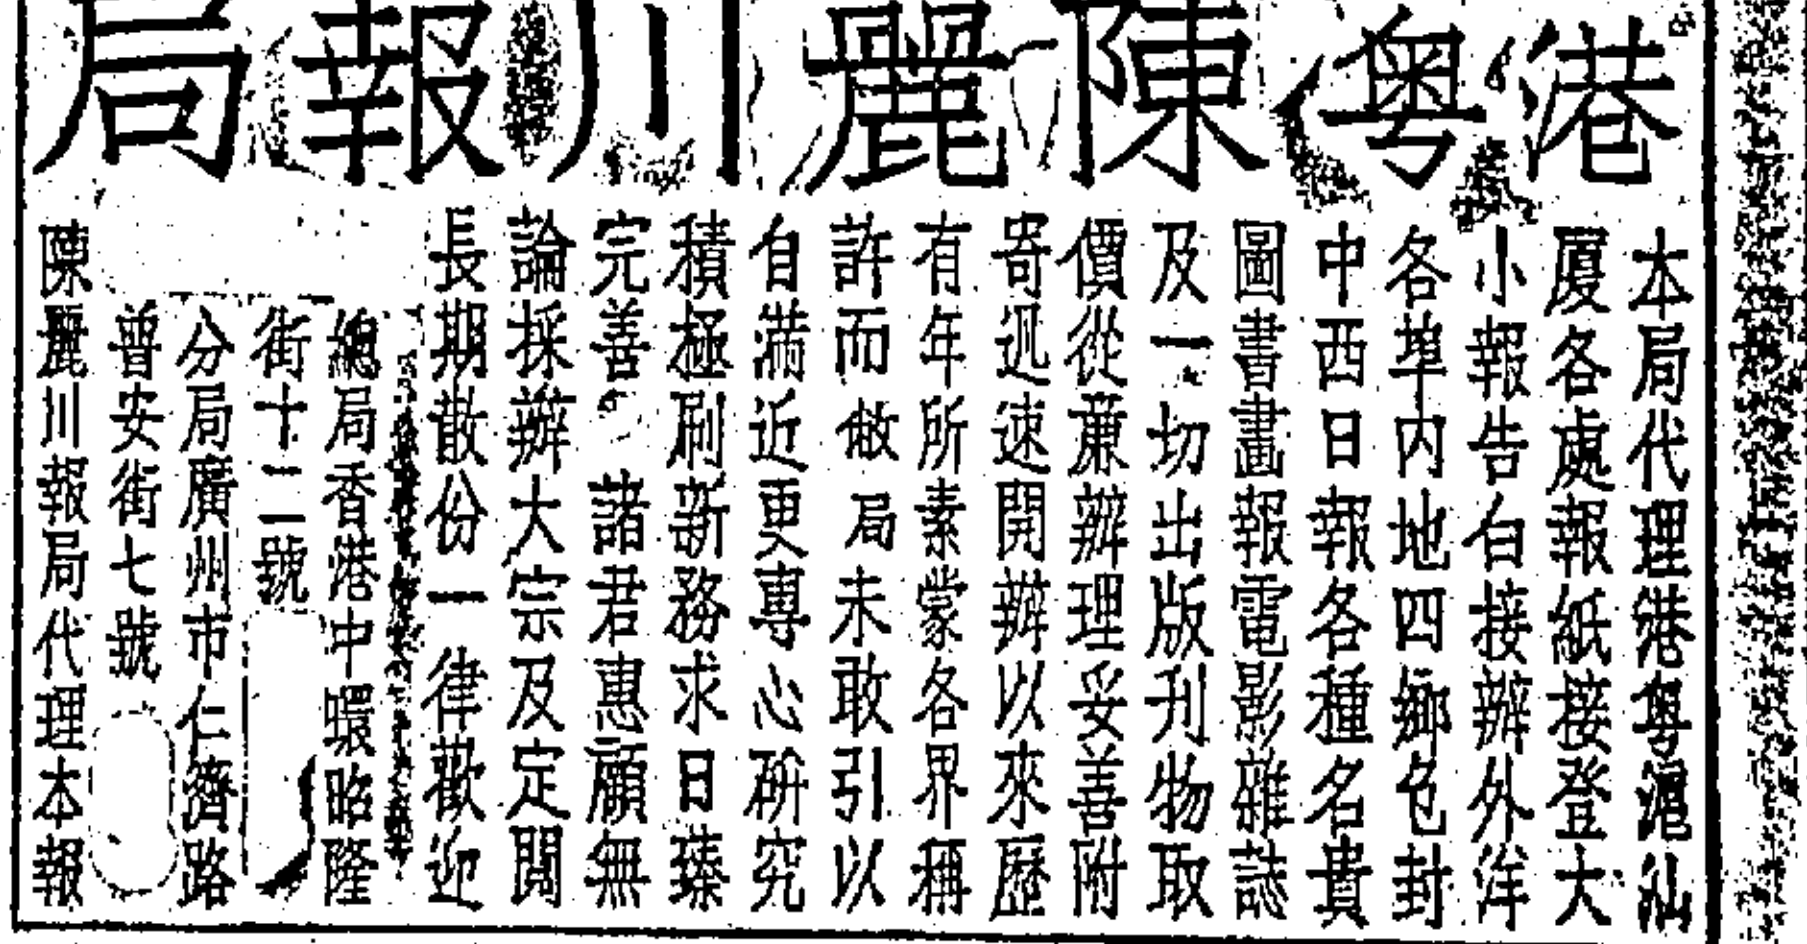 港粵陳麗川報局
本局代理港粵滬汕
厦各處報紙接登大
小報告白接辦外洋
各埠內地四鄉包封
中西日報各種名貴
圖書畫報電影雜誌
及一切出版刋物取
價從亷辦理妥善附
寄迅速開辦以來歷
有年所素蒙各界稱
許而敝局未敢引以
自滿近更專心研究
積極刷新務求日臻
完善 諸君惠顧無
論採辦大宗及定閱
長期散份一律歡迎
總局香港中環畧隆
街十二號
分局廣州市仁濟路
普安街七號
陳麗川報局代理本報